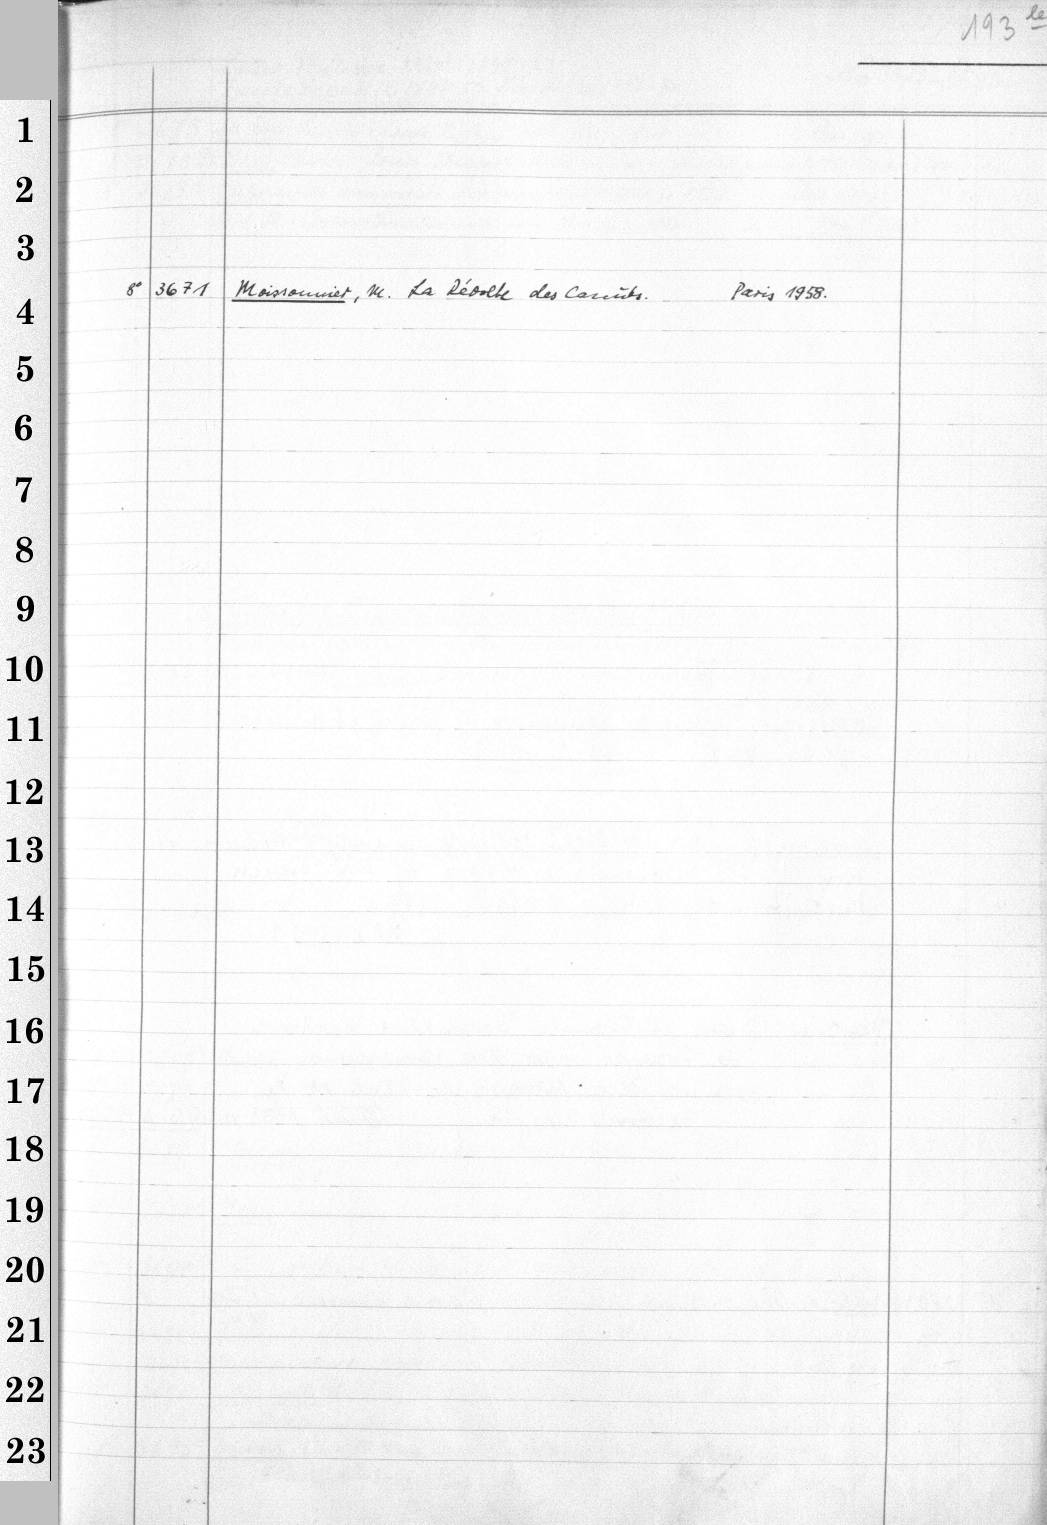 193 le
1
2
3
8° 3671 Moissonnier, M. La Révolte des Canuts. Paris 1958.
4
5
6
7
8
9
10
11
12
13
14
15
16
17
18
19
20
21
22
23